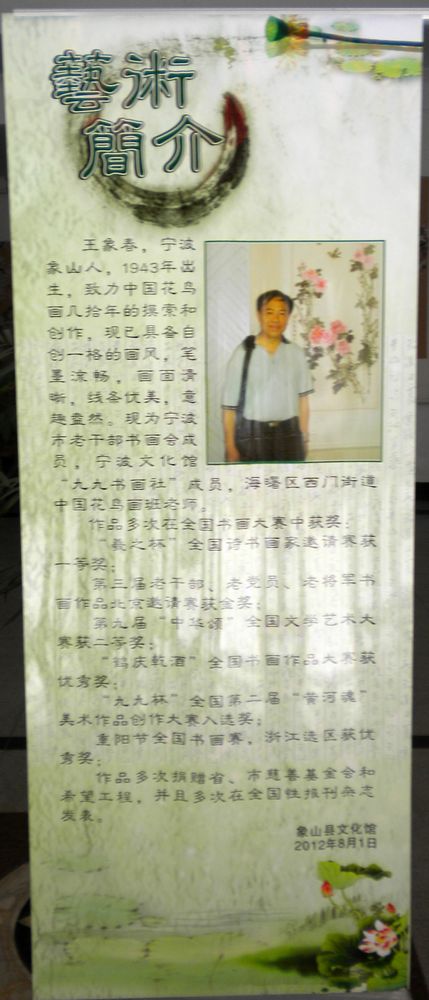 藝術
簡介
王象春，宁波
象山人，1943年出
生，致力中国花鸟
画几拾年的探索和
创作，现已具备自
创一格的画风，笔
墨流畅，画面清
晰，线条优美，意
趣盎然。现为宁波
市老干部书画会成
员，宁波文化馆
“九九书画社”成员，海曙区西门街道
中国花鸟画班老师。
作品多次在全国书画大赛中获奖：
“羲之杯”全国诗书画家邀请赛获
一等奖；
第三届老干部、老党员、老将军书
画作品北京邀请赛获金奖；
第九届“中华颂”全国文学艺术大
赛获二等奖；
“鹤庆乾酒”全国书画作品大赛获
优秀奖；
“九九杯”全国第二届“黄河魂”
美术作品创作大赛入选奖；
重阳节全国书画赛，浙江选区获优
秀奖；
作品多次捐赠省、市慈善基金会和
希望工程，并且多次在全国性报刊杂志
发表。
象山县文化馆
2012年8月1日